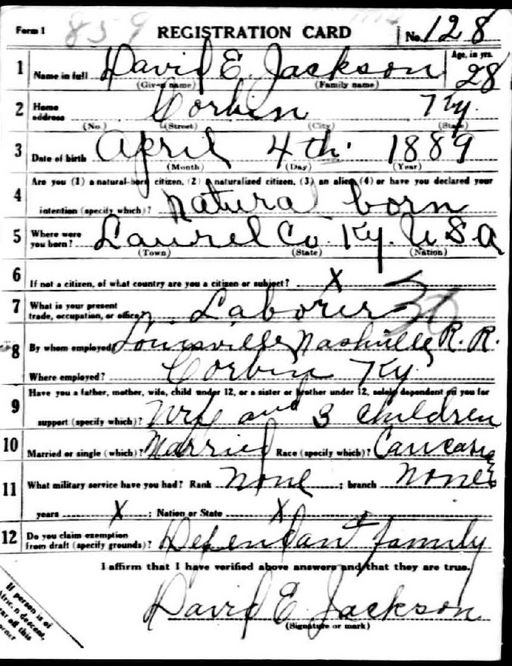 Form 1 859 REGISTRATION CARD No. 128
1 Name in full David E. Jackson Age, in yrs. 28
(Given name) (Family name)
2 Home address Corbin Ky.
(No.) (Street) (City) (State)
3 Date of birth April 4th. 1889
(Month) (Day) (Year)
4 Are you (1) a natural-born citizen, (2) a naturalized citizen, (3) an alien, (4) or have you declared your
intention (specify which)? natural born
5 Where were you born? Laurel Co. Ky. U S A
(Town) (State) (Nation)
6 If not a citizen, of what country are you a citizen or subject? X
7 What is your present trade, occupation, or office? Laborer 36
8 By whom employed? Louisville Nashville R. R.
Where employed? Corbin Ky.
9 Have you a father, mother, wife, child under 12, or a sister or brother under 12, solely dependent on you for
support (specify which)? Wife and 3 children
10 Married or single (which)? Married Race (specify which)? Caucasian
11 What military service have you had? Rank None ; branch None
years X ; Nation or State X
12 Do you claim exemption from draft (specify grounds)? Dependant family
I affirm that I have verified above answers and that they are true.
David E Jackson
(Signature or mark)
If person is of
descent,
off this
corner